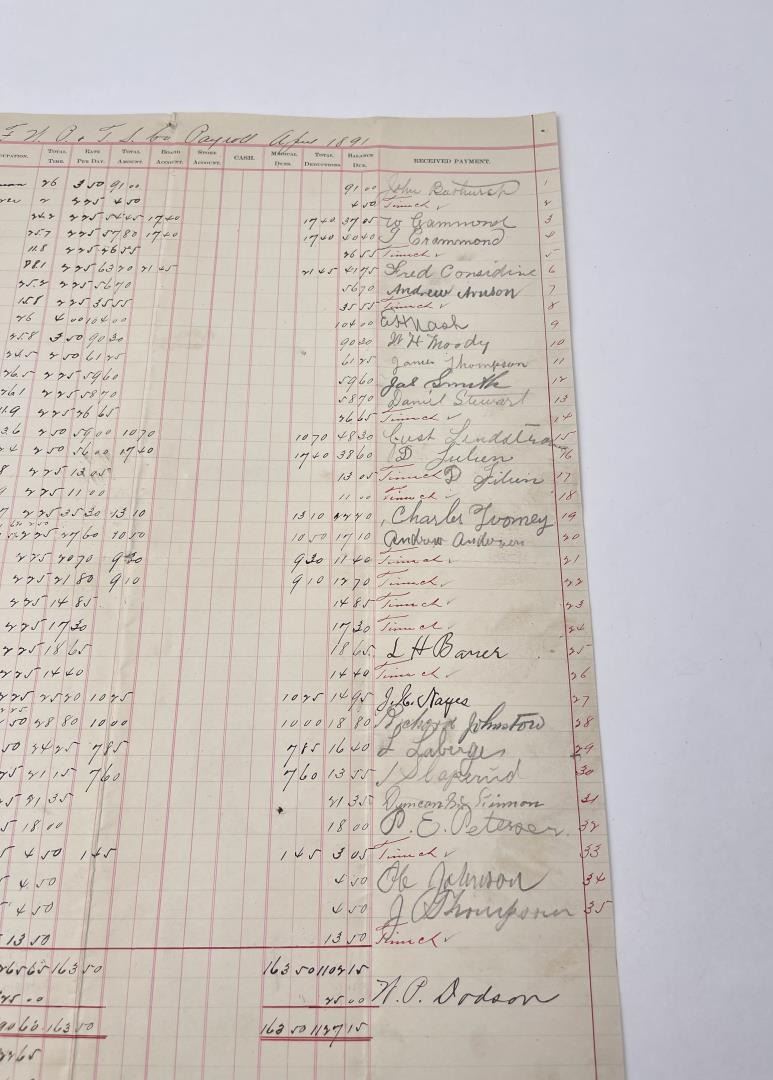 & T. S. Co Payroll April 1891
CUPATION. TOTAL TIME. RATE PER DAY. TOTAL AMOUNT. BOARD ACCOUNT. STORE ACCOUNT. CASH. MEDICAL DUES. TOTAL DEDUCTIONS. BALANCE DUE. RECEIVED PAYMENT.
26 3 50 91 00 91 00 John 1
2 2 25 4 50 4 50 Timech ✓ 2
24.2 2 25 54 45 17 40 17 40 37 05 W Crammond 3
25.7 2 25 57 80 17 40 17 40 40 40 J Crammond 4
11.8 2 25 26 55 26 55 Timech ✓ 5
2 25 63 20 21 45 21 45 41 75 Fred Considine 6
25.2 2 25 56 70 56 70 Andrew 7
15.8 2 25 35 55 35 55 Timech ✓ 8
26 4 00 104 00 104 00 Nash 9
25.8 3 50 90 30 90 30 W H Moody 10
24.5 2 50 61 25 61 25 James Thompson 11
26.5 2 25 59 60 59 60 Jas Smith 12
26.1 2 25 58 70 58 70 Daniel Stewart 13
11.9 2 25 26 65 26 65 Timech ✓ 14
3.6 2 50 59 00 10 70 10 70 48 30 Gust Lindstrom 15
4 2 50 56 00 17 40 17 40 38 60 D Julien 16
8 2 25 13 05 13 05 Timech D 17
9 2 25 11 00 11 00 Timech ✓ 18
7 2 25 35 30 13 10 13 10 22 20 Charles Twomey 19
2 25 27 60 10 50 10 50 17 10 Andrew Andersen 20
2 25 20 70 9 30 9 30 11 40 Timech ✓ 21
2 25 21 80 9 10 9 10 12 70 Timech ✓ 22
2 25 14 85 14 85 Timech ✓ 23
2 25 17 30 17 30 Timech ✓ 24
2 25 18 65 18 65 L H Barrer 25
2 25 14 40 14 40 Timech ✓ 26
2 25 25 20 10 25 10 25 14 95 27
50 28 80 10 00 10 00 18 80 Richard Johnston 28
50 24 25 7 85 7 85 16 40 L Laberges 29
5 21 15 7 60 7 60 13 55 30
5 21 35 21 35 Duncan 31
5 18 00 18 00 P. E. Petersen 32
5 4 50 1 45 1 45 3 05 Timech ✓ 33
5 4 50 4 50 Johnson 34
5 4 50 4 50 J Thompson 35
13 50 13 50 Timech ✓
265 65 163 50 163 50 1102 15
25 00 25 00 W. P. Dodson
90 65 163 50 163 50 1127 15
2265